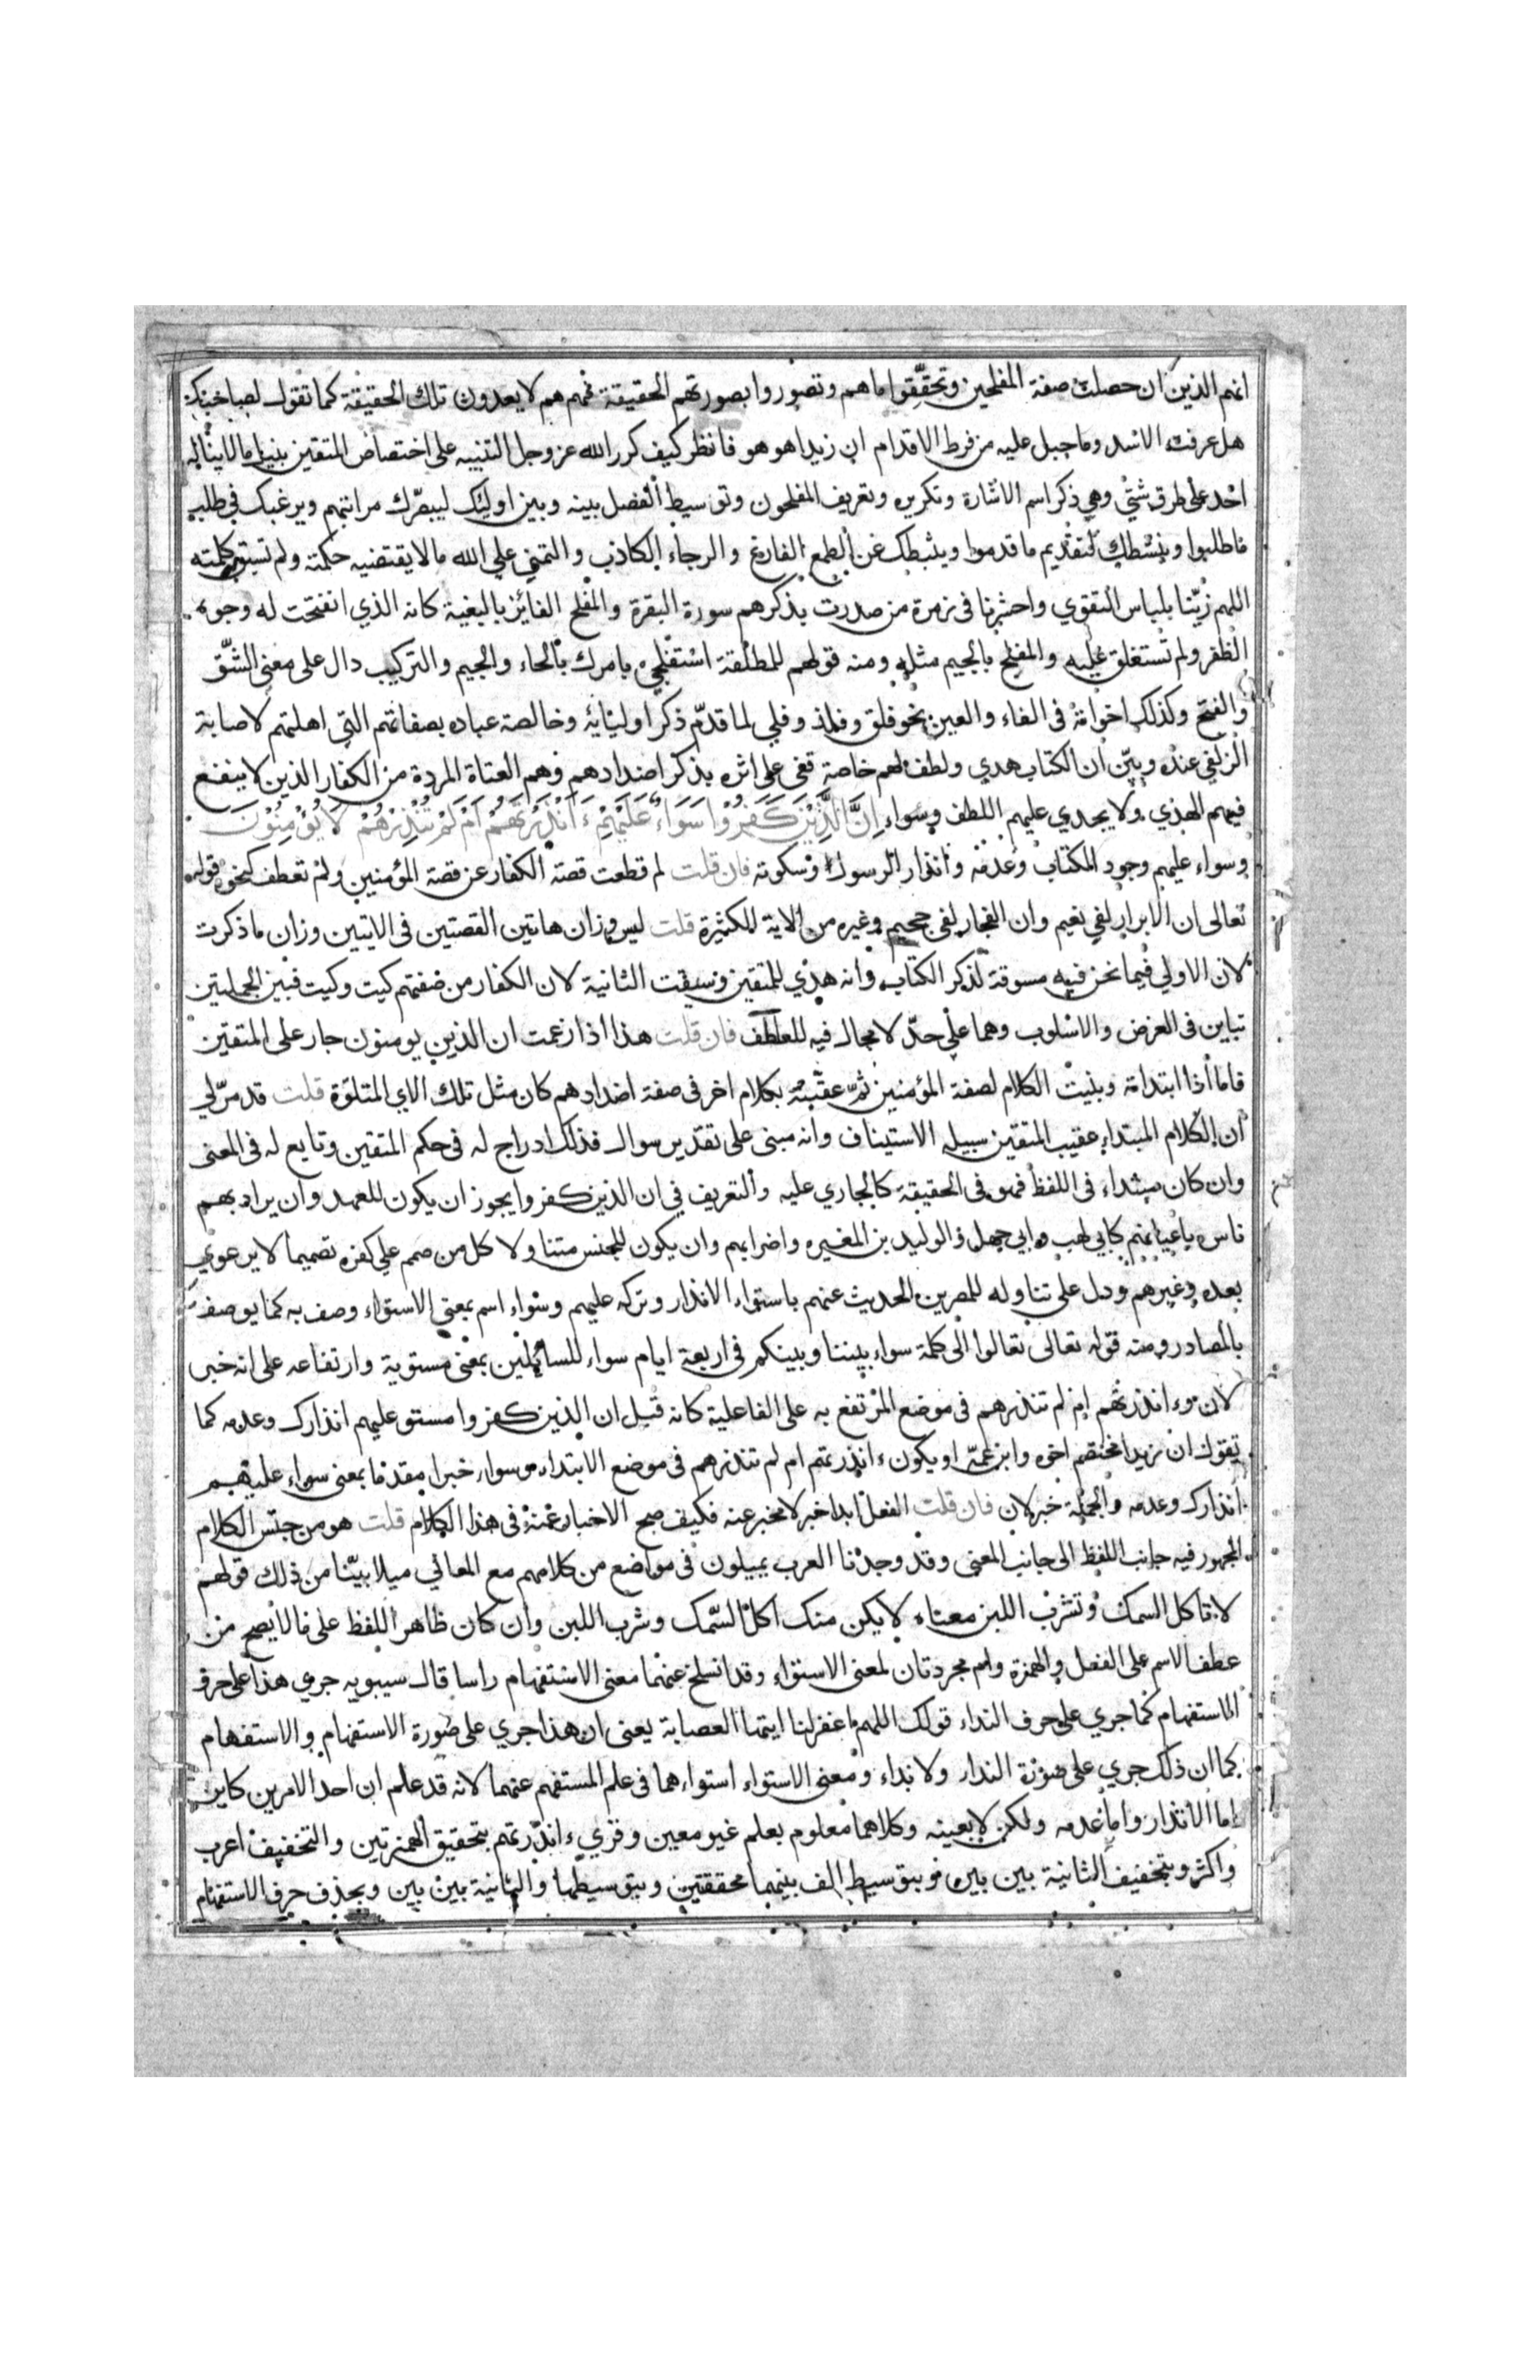 انهم الذين ان حصلت صفة المفلحين وتحققوا ماهم وتصوروا بصورتهم الحقيقة فهم هم لا يعدون تلك الحقيقة كما تقول لصاحبك
هل عرفت الاسد وما جبل عليه من فرط الاقدام ان زيدا هو هو فانظر كيف كرر الله عز وجل التنبيه على اختصاص المتقين بنيل ما لا يناله
احد على طرق شتي وهي ذكر اسم الاشارة وتكريره وتعريف المفلحون وتوسيط الفصل بينه وبين اوليك ليبصرك مراتبهم ويرغبك في طلب
ماطلبوا وينشطك لتقديم ما قدموا ويثبطك عن الطمع الفارغ والرجاء الكاذب والتمني علي الله مالا يقتضيه حكمته ولم تسبق كلمته
اللهم زينا بلباس التقوي واحشرنا فى زمرة من صدرت بذكرهم سورة البقرة والمفلح الفائز بالبغية كانه الذي انفتحت له وجوه
الظفر ولم تستغلق عليه والمفلج بالجيم مثله ومنه قولهم للمطلقة استفلحى بامرك بالحاء والجيم والتركيب دال على معنى الشق
والفتح وكذلك اخواته فى الفاء والعين نحو فلق وفلذ وفلي لما قدم ذكر اوليائه وخالصة عباده بصفاتهم التي اهلتهم لاصابة
الزلفي عنده وبين ان الكتاب هدي ولطف لهم خاصة قفى على اثره بذكر اضدادهم وهم العتاة المردة من الكفار الذين لا ينفع
فيهم الهدي ولا يجدي عليهم اللطف وسواء إِنَّ الَّذِيْنَ كَفَرُوْا سَوَاءٌ عَلَيْهِمْ ءَاَنْذَرْتَهُمْ اَمْ لَمْ تُنْذِرْهُمْ لَا يُوْمِنُوْنَ
وسواء عليهم وجود الكتاب وعدمه وانذار الرسول وسكوته فان قلت لم قطعت قصة الكفار عن قصة المؤمنين ولم تعطف كنحو قوله
تعالى ان الابرار لفي نعيم وان الفجار لفى جحيم وغيره من الاية الكثيرة قلت ليس وزان هاتين القصتين فى الايتين وزان ما ذكرت
لان الاولي فيما نحن فيه مسوقة لذكر الكتاب وانه هدي للمتقين وسيقت الثانية لان الكفار من صفتهم كيت وكيت فبين الجملتين
تباين فى الغرض والاسلوب وهما علي حد لا مجال فيه للعطف فان قلت هذا اذا زعمت ان الذين يومنون جار على المتقين
فاما اذا ابتداته وبنيت الكلام لصفة المؤمنين ثم عقبته بكلام اخر فى صفة اضدادهم كان مثل تلك الاي المتلوة قلت قد مر لي
ان الكلام المبتداء عقيب المتقين سبيله الاستيناف وانه مبنى على تقدير سوال فذلك ادراج له فى حكم المتقين وتابع له فى المعنى
وان كان مبتداء فى اللفظ فهو فى الحقيقة كالجاري عليه والتعريف في ان الذين كفروا يجوز ان يكون للعهد وان يراد بهم
ناس باعيانهم كابي لهب وابي جهل والوليد بن المغيره واضرابهم وان يكون للجنس متناولا كل من صمم علي كفره تصميما لا يرعوي
بعده وغيرهم ودل على تناوله للمصرين الحديث عنهم باستواء الانذار وتركه عليهم وسواء اسم بمعني الاستواء وصف به كما يوصف
بالمصادر ومنه قوله تعالى تعالوا الى كلمة سواء بيننا وبينكم فى اربعة ايام سواء للسائلين بمعنى مستوية وارتفاعه على انه خبر
لان وءانذرتهم ام لم تنذرهم فى موضع المرتفع به على الفاعلية كانه قيل ان الذين كفروا مستو عليهم انذارك وعدمه كما
تقول ان زيدا مختصم اخوه وابن عمه او يكون ءانذرتهم ام لم تنذرهم فى موضع الابتداء وسواء خبرا مقدما بمعنى سواء عليهم
انذارك وعدمه والجملة خبر لان فان قلت الفعل ابدا خبر لا مخبر عنه فكيف صح الاخبار عنه فى هذا الكلام قلت هو من جنس الكلام
المهجور فيه جانب اللفظ الى جانب المعنى وقد وجدنا العرب يميلون فى مواضع من كلامهم مع المعاني ميلا بينا من ذلك قولهم
لا تاكل السمك وتشرب اللبن معناه لا يكن منك اكل السمك وشرب اللبن وان كان ظاهر اللفظ على مالا يصح من
عطف الاسم على الفعل والهمزة وام مجردتان لمعنى الاستواء وقد انسلخ عنهما معنى الاستفهام راسا قال سيبويه جري هذا على حرف
الاستفهام كما جري على حرف النداء قولك اللهم اغفر لنا ايتها العصابة يعنى ان هذا جري على صورة الاستفهام والاستفهام
كما ان ذلك جري على صورة الندار ولا نداء ومعنى الاستواء استواءهما فى علم المستفهم عنهما لانه قد علم ان احد الامرين كاين
اما الانذار واما عدمه ولكن لا بعينه وكلاهما معلوم بعلم غير معين وقري ءانذرتهم بتحقيق الهمزتين والتخفيف اعرب
واكثر وبتخفيف الثانية بين بين وبتوسيط الف بينهما محققتين وبتوسيطها والثانية بين بين وبحذف حرف الاستفهام